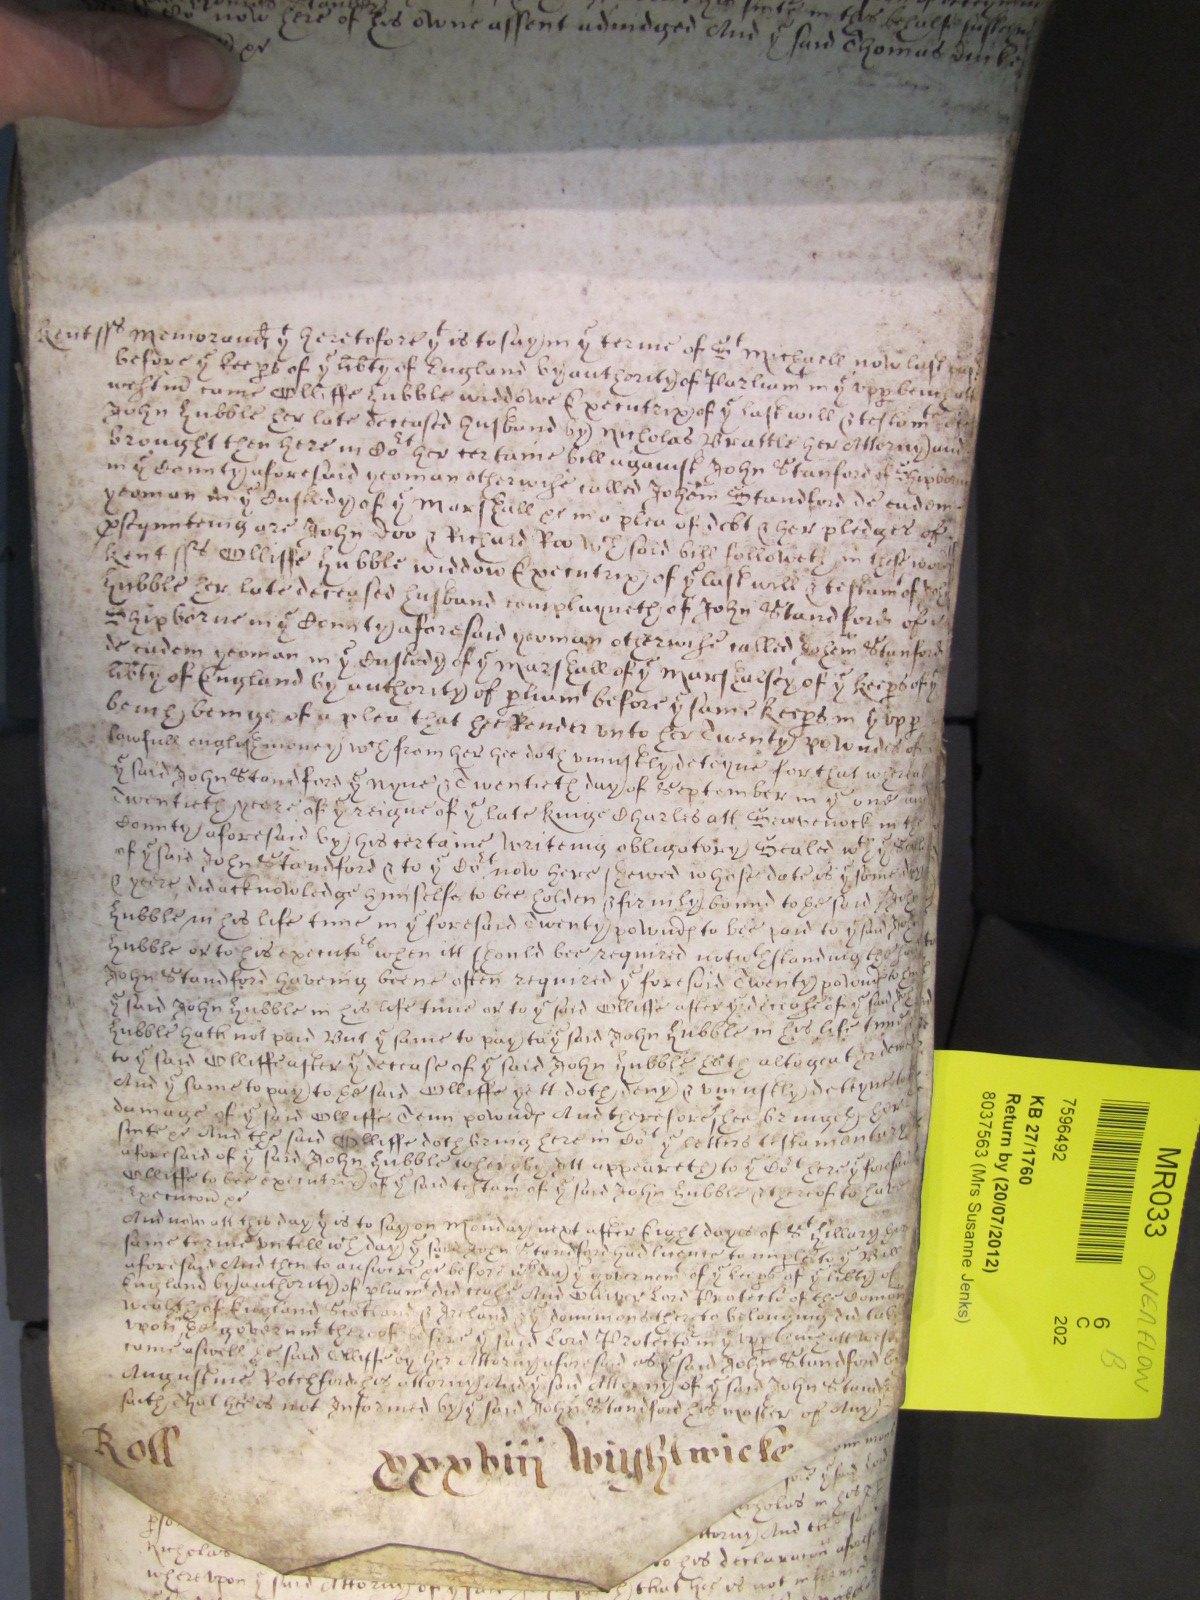 now here of his owne assent adiudged And y said Thomas
Kent ss Memorand yt heretofore yt is to say in ye terme of St Michaell now last past
before ye keeps of ye libty of England by authority of Parliamt in ye upp bench att
westmr came Olliffe Hubble widdowe Executrix of ye last will & testamt of
John Hubble her late deceased husband by Nicholas Brattle her Attorny and
brought then here in Cort her certaine bill against John Stanford of Shipborne
in ye County aforesaid yeoman otherwise called Johem Standford de eadem
yeoman in ye Custody of ye Marshall &c in a plea of debt & her pledges of
psequuteing are John Doo & Richard Roo wch said bill followeth in these words
Kent ss Olliffe Hubble widdow Executrix of ye last will & testamt of John
Hubble her late deceased husband complayneth of John Standford of
Shipborne in ye County aforesaid yeoman otherwise called Johem Stanford
de eadem yeoman in ye Custody of ye Marshall of ye Marshalsey of ye keeps of ye
libty of England by authority of pliamt before ye same keeps in ye upp
bench beinge of a plea that hee Render unto her Twenty powndes of
lawfull english money wch from her hee doth uniustly deteyne for that whereas
ye said John Standford ye Nyne & Twentieth day of September in ye one and
Twentieth yeere of ye reigne of ye late Kinge Charles att in the
County aforesaid by his certaine writeing obligatory Sealed wth ye Seale
of ye said John Standford & to ye Cort now here shewed whose date is ye same day
& yeere did acknowledge himselfe to bee holden & firmly bound to he said John
Hubble in his life time in ye foresaid Twenty pownds to bee paid to ye said John
Hubble or to his executors when itt should bee required notwithstanding the said
John Standford haveing beene often required ye foresaid Twenty pownds to
ye said John Hubble in his life time or to ye said Olliffe after ye decease of ye said John
Hubble hath not paid But ye same to pay to ye said John Hubble in his life time or
to ye said Olliffe after ye decease of ye said John Hubble hath altogeather denied
And ye same to pay to he said Olliffe yett doth deny & uniustly deteyne to ye
damage of ye said Olliffe Tenn pownds And therefore shee bringeth here
suite &c And the said Olliffe doth bring here in Cort ye letters testamentary
aforesaid of ye said John Hubble whereby itt appeareth to ye Cort here ye foresaid
Olliffe to bee executrix of ye said testamt of ye said John Hubble & thereof to have
Execucon &c
And now att this day yt is to say on Monday next after Eight dayes of St Hillary this
same terme untill wch day ye said John Standford had licence to imple to ye Bill
aforesaid And then to answere &c before wch day ye governmt of ye keeps of ye libty of
England by authority of pliamt did cease And Oliver Lord Protector of the Comon
wealth of England Scotland & Ireland & ye dominions thereto belonging did take
upon he governmt thereof before ye said Lord Protector in ye upp bench att westmr
come aswell he said Olliffe by her Attorny aforesaid as ye said John Standford by
Augustine Rotchford his attorny And ye said Attorny of ye said John Standford
saith That hee is not Informed by ye said John Standford his master of Any
Roll xxxviij Wightwicke
ye said Lord
Nicholas in his
Attorny And the said
Nicholas to his declaracon aforesaid
whereupon ye said Attorny of ye said that hee is not informed
MR033
OVERFLOW
B
6
C
202
7596492
KB 27/1760
Return by (20/07/2012)
8037563 (Mrs Susanne Jenks)